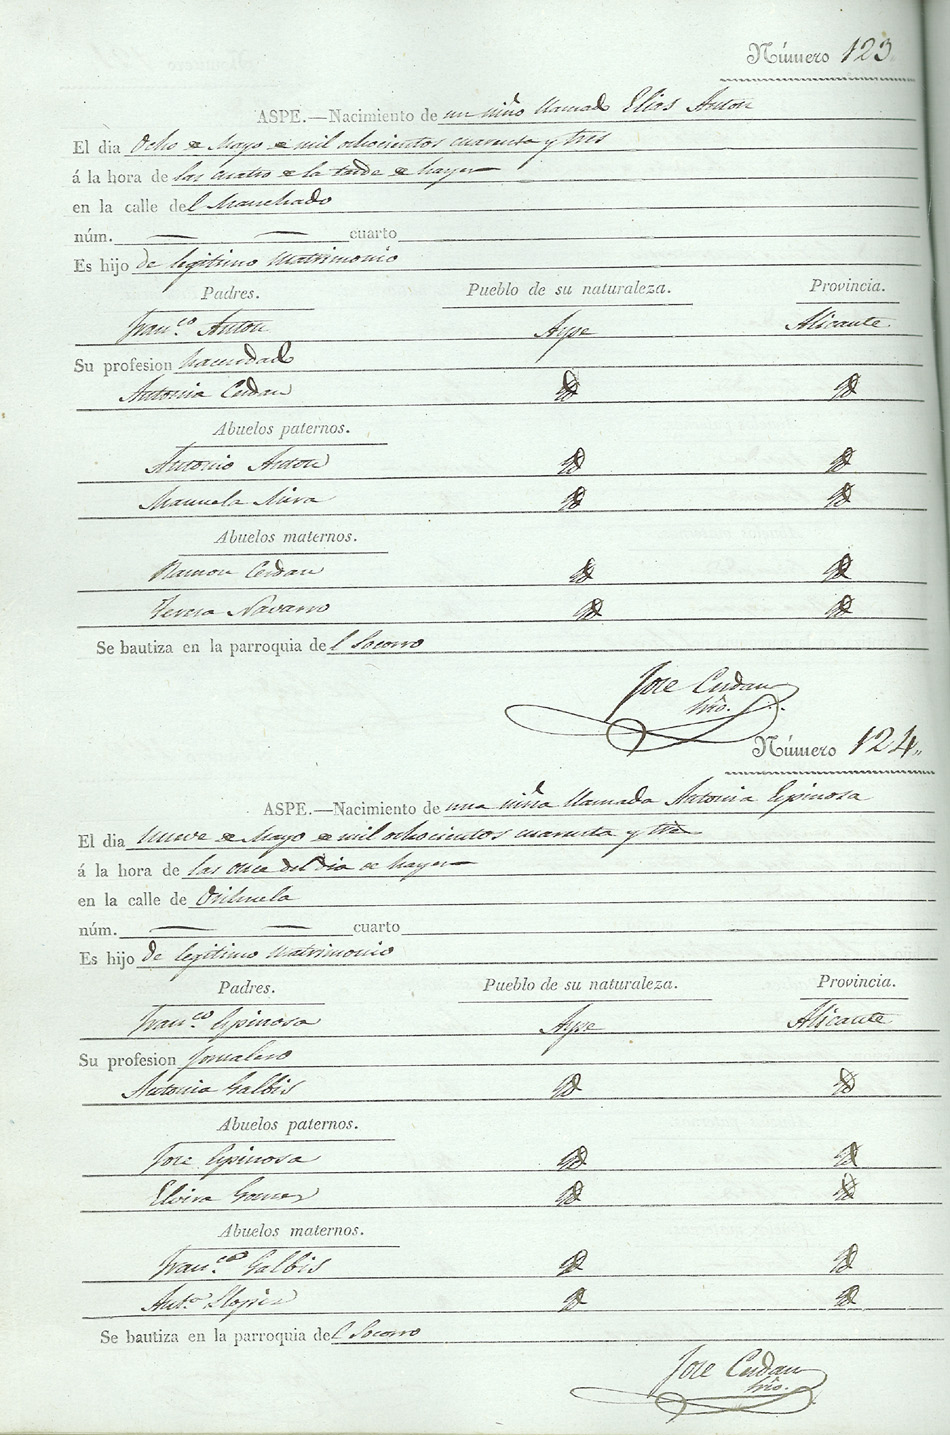 Número 123.
ASPE.—Nacimiento de un niño llamado Elias Anton
El dia Ocho de Mayo de mil ochocientos cuarenta y tres
á la hora de las cuatro de la tarde de hayer
en la calle del Manchado
núm. — — cuarto
Es hijo de legitimo Matrimonio
Padres. Pueblo de su naturaleza. Provincia.
Franco. Anton Aspe Alicante
Su profesion hacendado
Antonia Cerdan id id
Abuelos paternos.
Antonio Anton id id
Manuela Mira id id
Abuelos maternos.
Ramon Cerdan id id
Teresa Navarro id id
Se bautiza en la parroquia del Socorro
Jose Cerdan
Srio.
Número 124.
ASPE.—Nacimiento de una niña llamada Antonia Espinosa
El dia Nueve de Mayo de mil ochocientos cuarenta y tres
á la hora de las once del dia de hayer
en la calle de Orihuela
núm. — — cuarto
Es hijo de legitimo Matrimonio
Padres. Pueblo de su naturaleza. Provincia.
Franco. Espinosa Aspe Alicante
Su profesion Jornalero
Antonia Galbis id id
Abuelos paternos.
Jose Espinosa id id
Elvira Gomez id id
Abuelos maternos.
Franco. Galbis id id
Anta. Llopis id id
Se bautiza en la parroquia del Socorro
Jose Cerdan
Srio.